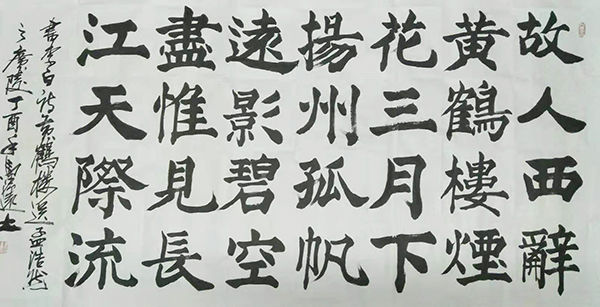 故人西辭
黄鶴樓煙
花三月下
揚州孤帆
遠影碧空
盡惟見長
江天際流
書李白詩黄鶴樓送孟浩然
之廣陵丁酉年